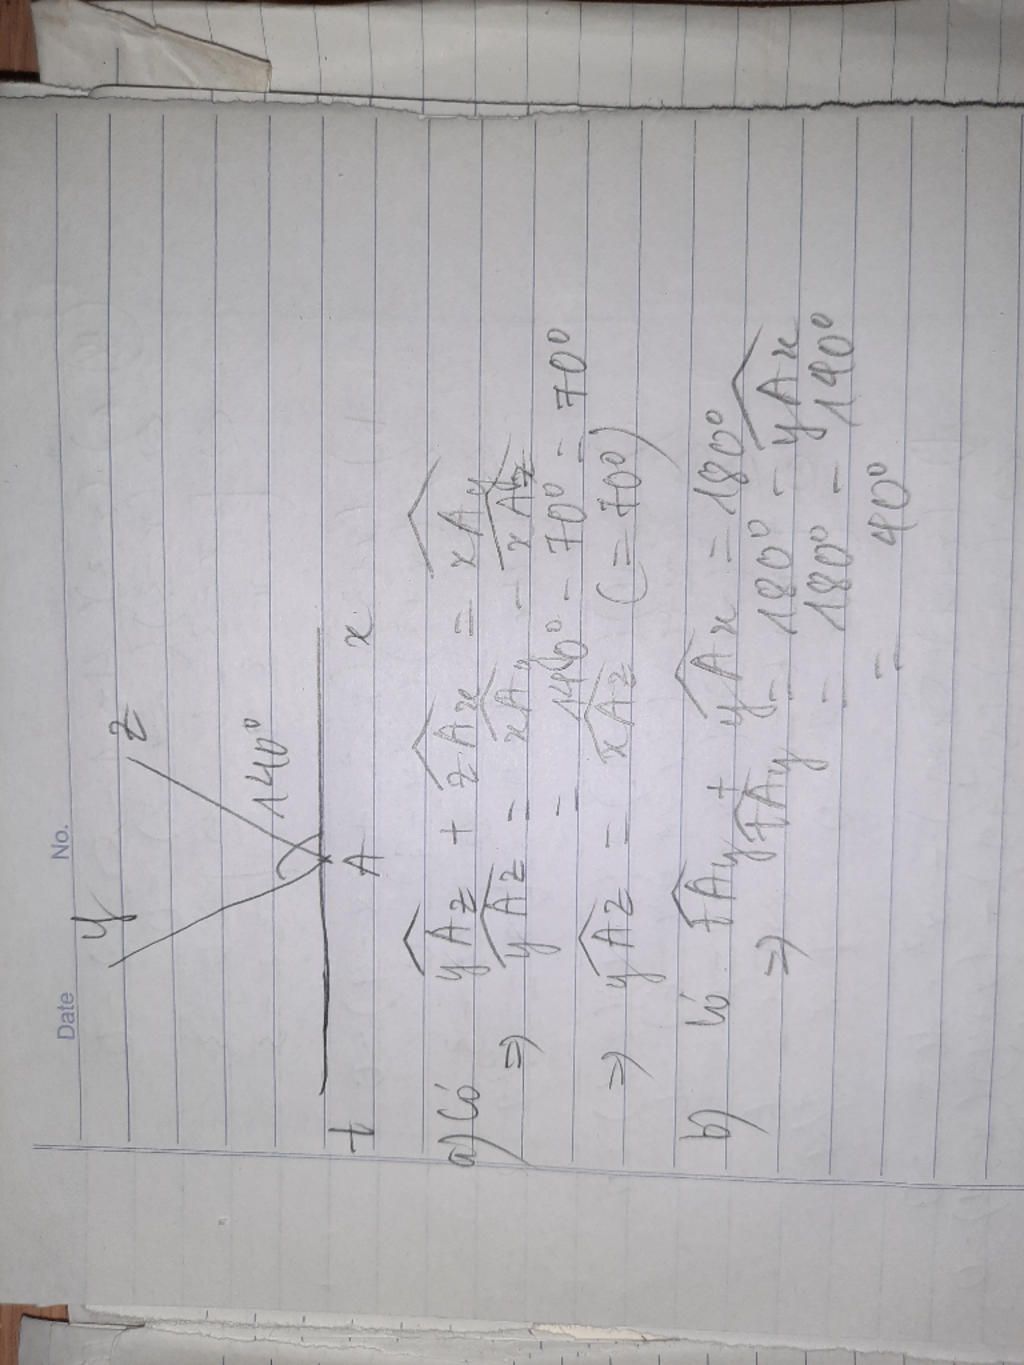 Date No.
y
z
140°
t A x
a) Có yAz + zAx = xAy
⇒ yAz = xAy - xAz
= 140° - 70° = 70°
⇒ yAz = xAz (= 70°)
b) Có tAy + yAx = 180°
⇒ tAy = 180° - yAx
= 180° - 140°
= 40°